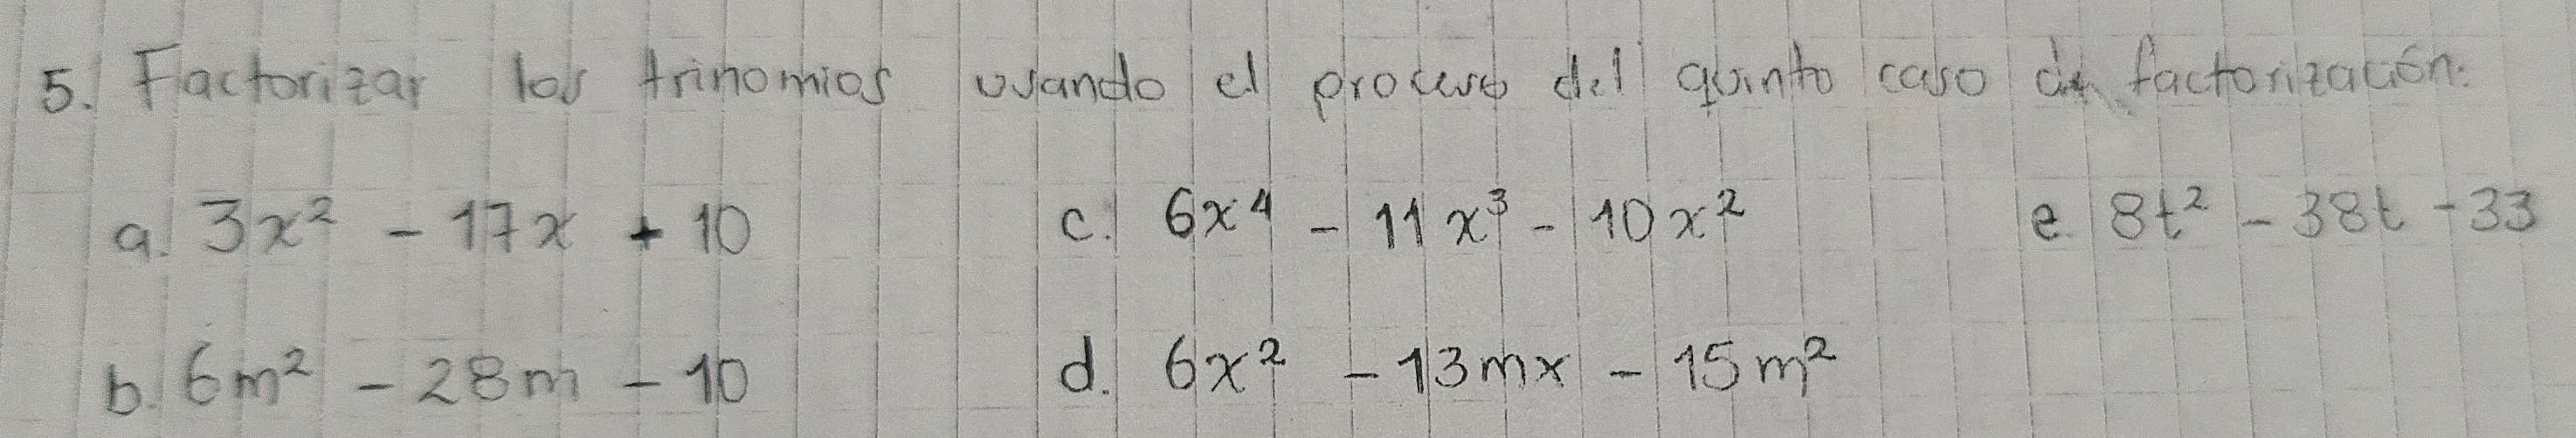 5. Factorizar los trinomios usando el proceso del quinto caso de factorización:
a. 3x² - 17x + 10 c. 6x⁴ - 11x³ - 10x² e. 8t² - 38t - 33
b. 6m² - 28m - 10 d. 6x² - 13mx - 15m²